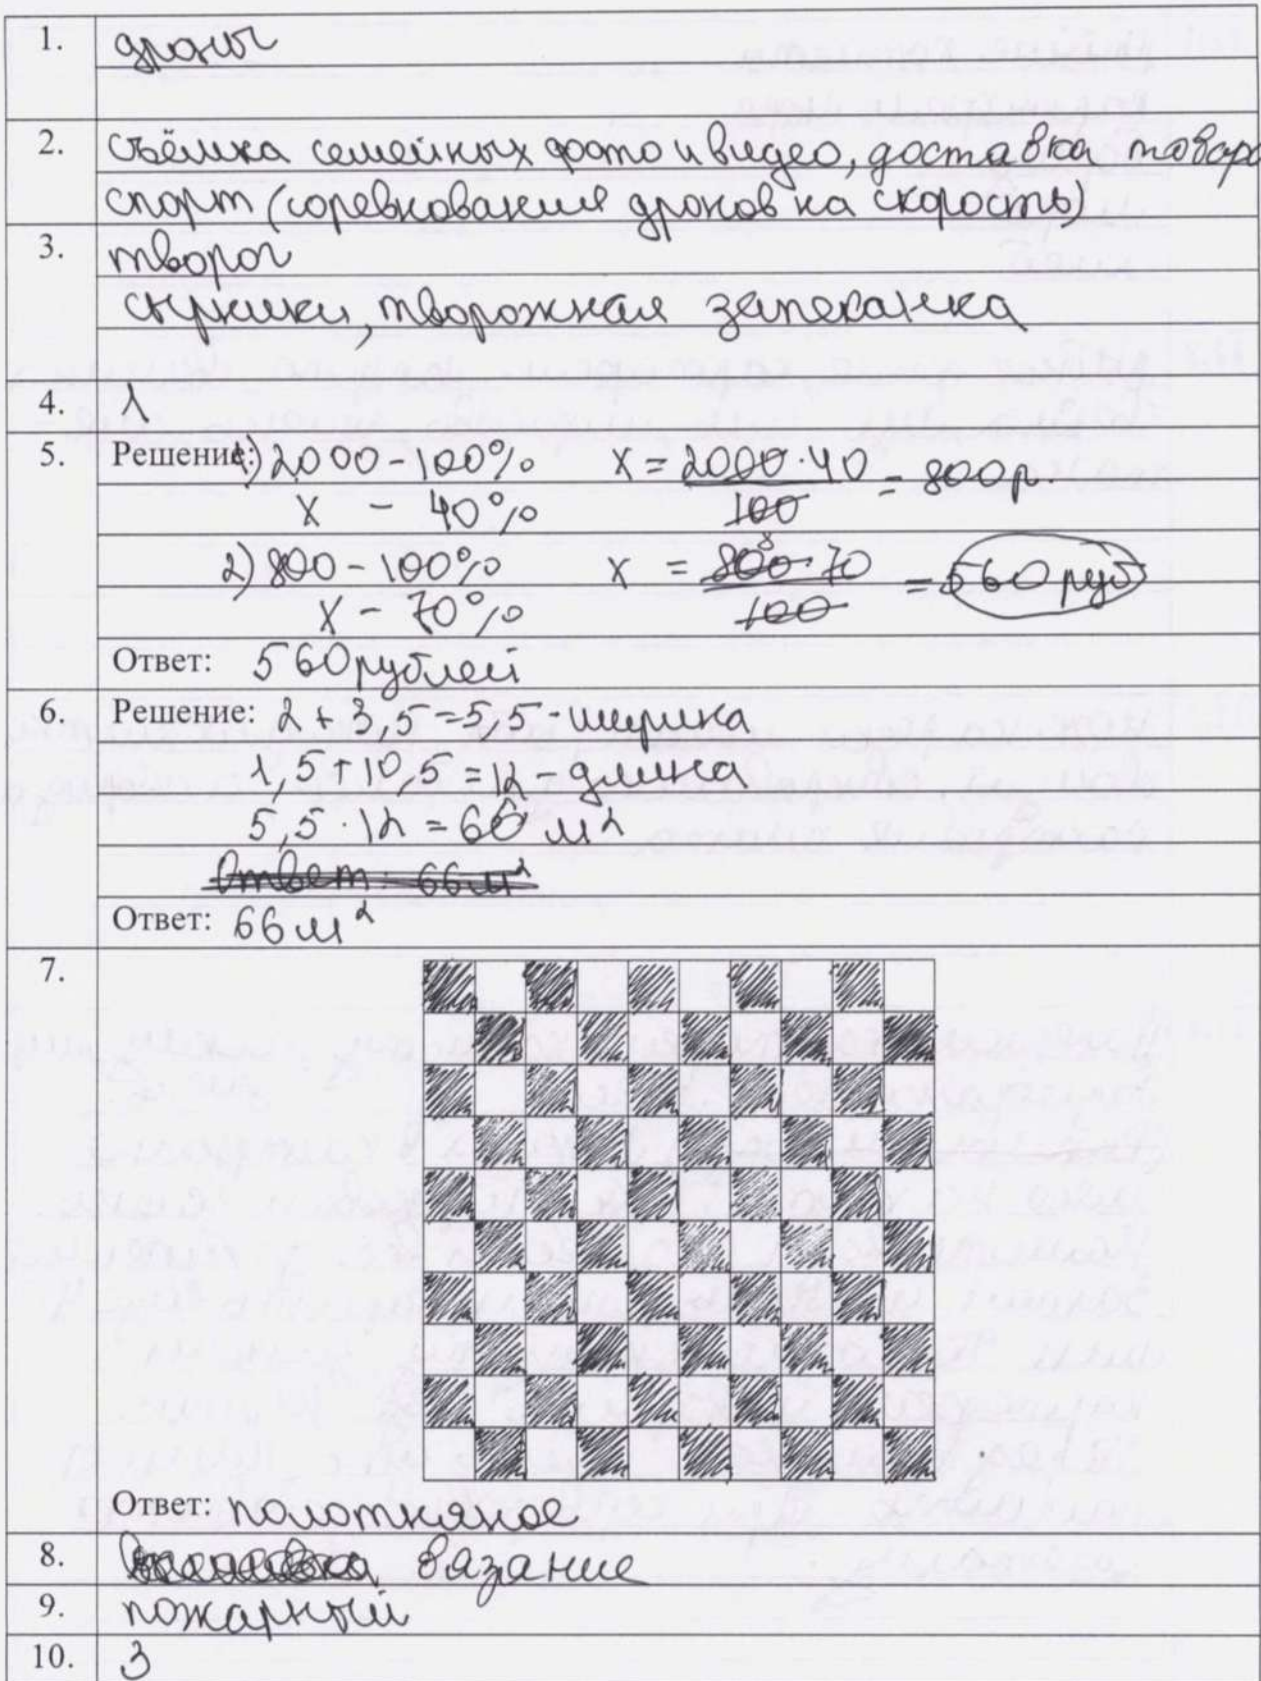 1. дроны
2. съёмка семейных фото и видео, доставка товаро
спорт (соревнования дронов на скорость)
3. творог
сырники, творожная запеканка
4. 1
5. Решение: 1) 2000 - 100% x = 2000·40 / 100 = 800 р.
x - 40%
2) 800 - 100% x = 800·70 / 100 = 560 руб
x - 70%
Ответ: 560 рублей
6. Решение: 2 + 3,5 = 5,5 - ширина
1,5 + 10,5 = 12 - длина
5,5 · 12 = 66 м²
Ответ: 66 м²
Ответ: 66 м²
7.
Ответ: полотняное
8. вязание
9. пожарный
10. 3